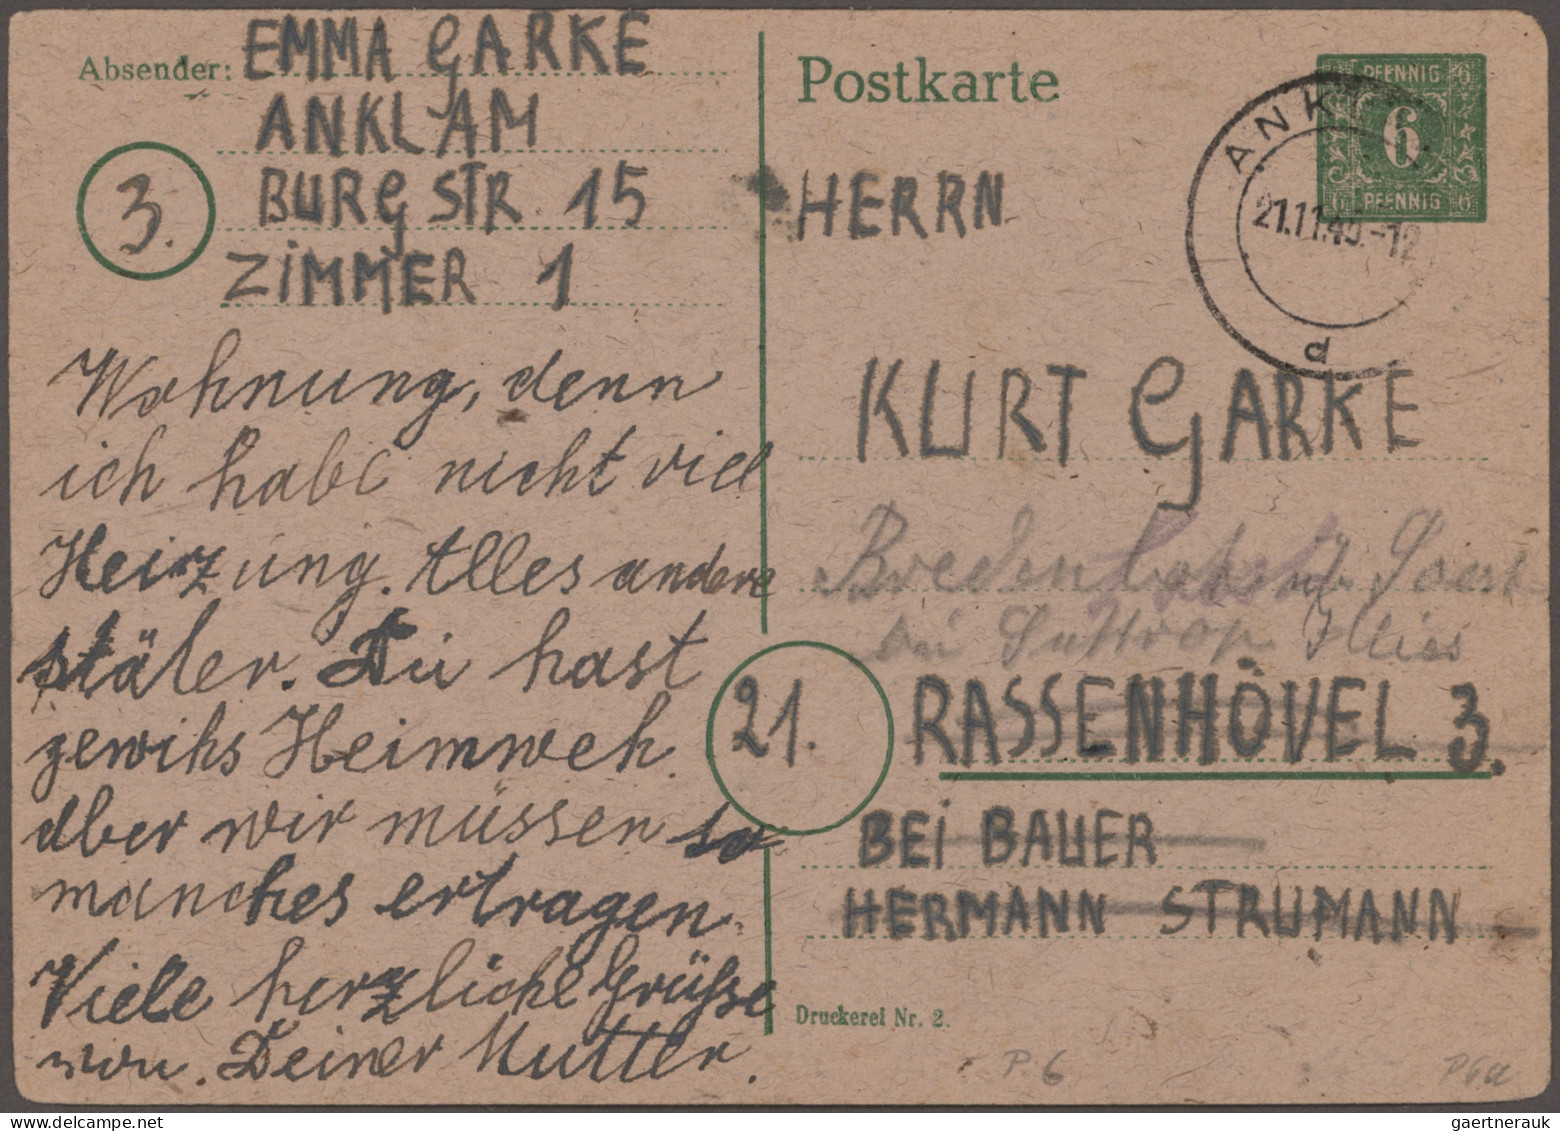 Absender: EMMA GARKE
ANKLAM
3.
BURGSTR. 15
ZIMMER 1
Wohnung, denn
ich habe nicht viel
Heizung. Alles andere
stäter. Du hast
gewiks Heimweh.
aber wir müssen so
manches ertragen.
Viele herzliche Grüsse
von. Deiner Mutter.
Postkarte
PFENNIG
6
PFENNIG
21.11.45.-12
HERRN
KURT GARKE
Soest
bei Suttrop
21.
RASSENHÖVEL 3.
BEI BAUER
HERMANN STRUMANN
Druckerei Nr. 2.
P. 6
P6a
gaertnerauk